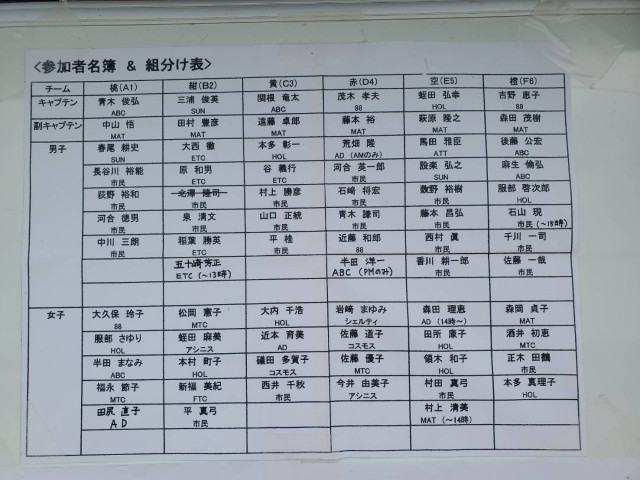 <参加者名簿 & 組分け表>
チーム 桃(A1) 紺(B2) 黄(C3) 赤(D4) 空(E5) 橙(F6)
キャプテン 青木 俊弘 三浦 俊英 関根 竜太 茂木 孝夫 蛭田 弘幸 吉野 恵子
ABC SUN ABC 88 HOL 88
副キャプテン 中山 悟 田村 豊彦 遠藤 卓郎 藤本 裕 萩原 隆之 森田 茂樹
MAT MAT MAT MAT MAT MAT
男子 春尾 耕史 大西 徹 本多 彰一 荒畑 隆 馬田 雅臣 後藤 公宏
SUN ETC HOL AD (AMのみ) ATT ABC
長谷川 裕能 原 和男 谷 義行 河合 英一郎 設楽 弘之 麻生 倫弘
市民 ETC ETC 市民 SUN ABC
萩野 裕和 北澤 隆司 村上 勝彦 石崎 将宏 数野 裕樹 服部 啓次郎
市民 市民 市民 市民 市民 HOL
河合 徳男 泉 清文 山口 正統 青木 謙司 藤本 昌弘 石山 現
市民 市民 市民 市民 市民 市民 (~15時)
中川 三朗 稲葉 勝英 平 桂 近藤 和郎 西村 眞 千川 一司
市民 ETC 市民 88 市民 市民
五十嵜 芳正 半田 洋一 香川 耕一郎 佐藤 一哉
ETC (~13時) ABC (PMのみ) 市民 市民
女子 大久保 玲子 松岡 憲子 大内 千浩 岩崎 まゆみ 森田 理恵 森岡 貞子
88 MTC HOL シェルティ AD (14時~) MAT
服部 さゆり 蛭田 麻美 近本 育美 佐藤 道子 田所 康子 酒井 初恵
HOL アシニス AD コスモス HOL MTC
半田 まなみ 本村 町子 礒田 多賀子 佐藤 優子 領木 和子 正木 田鶴
ABC HOL コスモス MTC HOL 市民
福永 節子 新福 美紀 西井 千秋 今井 由美子 村田 真弓 本多 真理子
MTC FTC 市民 アシニス 市民 HOL
田尻 直子 平 真弓 村上 清美
AD 市民 MAT (~14時)